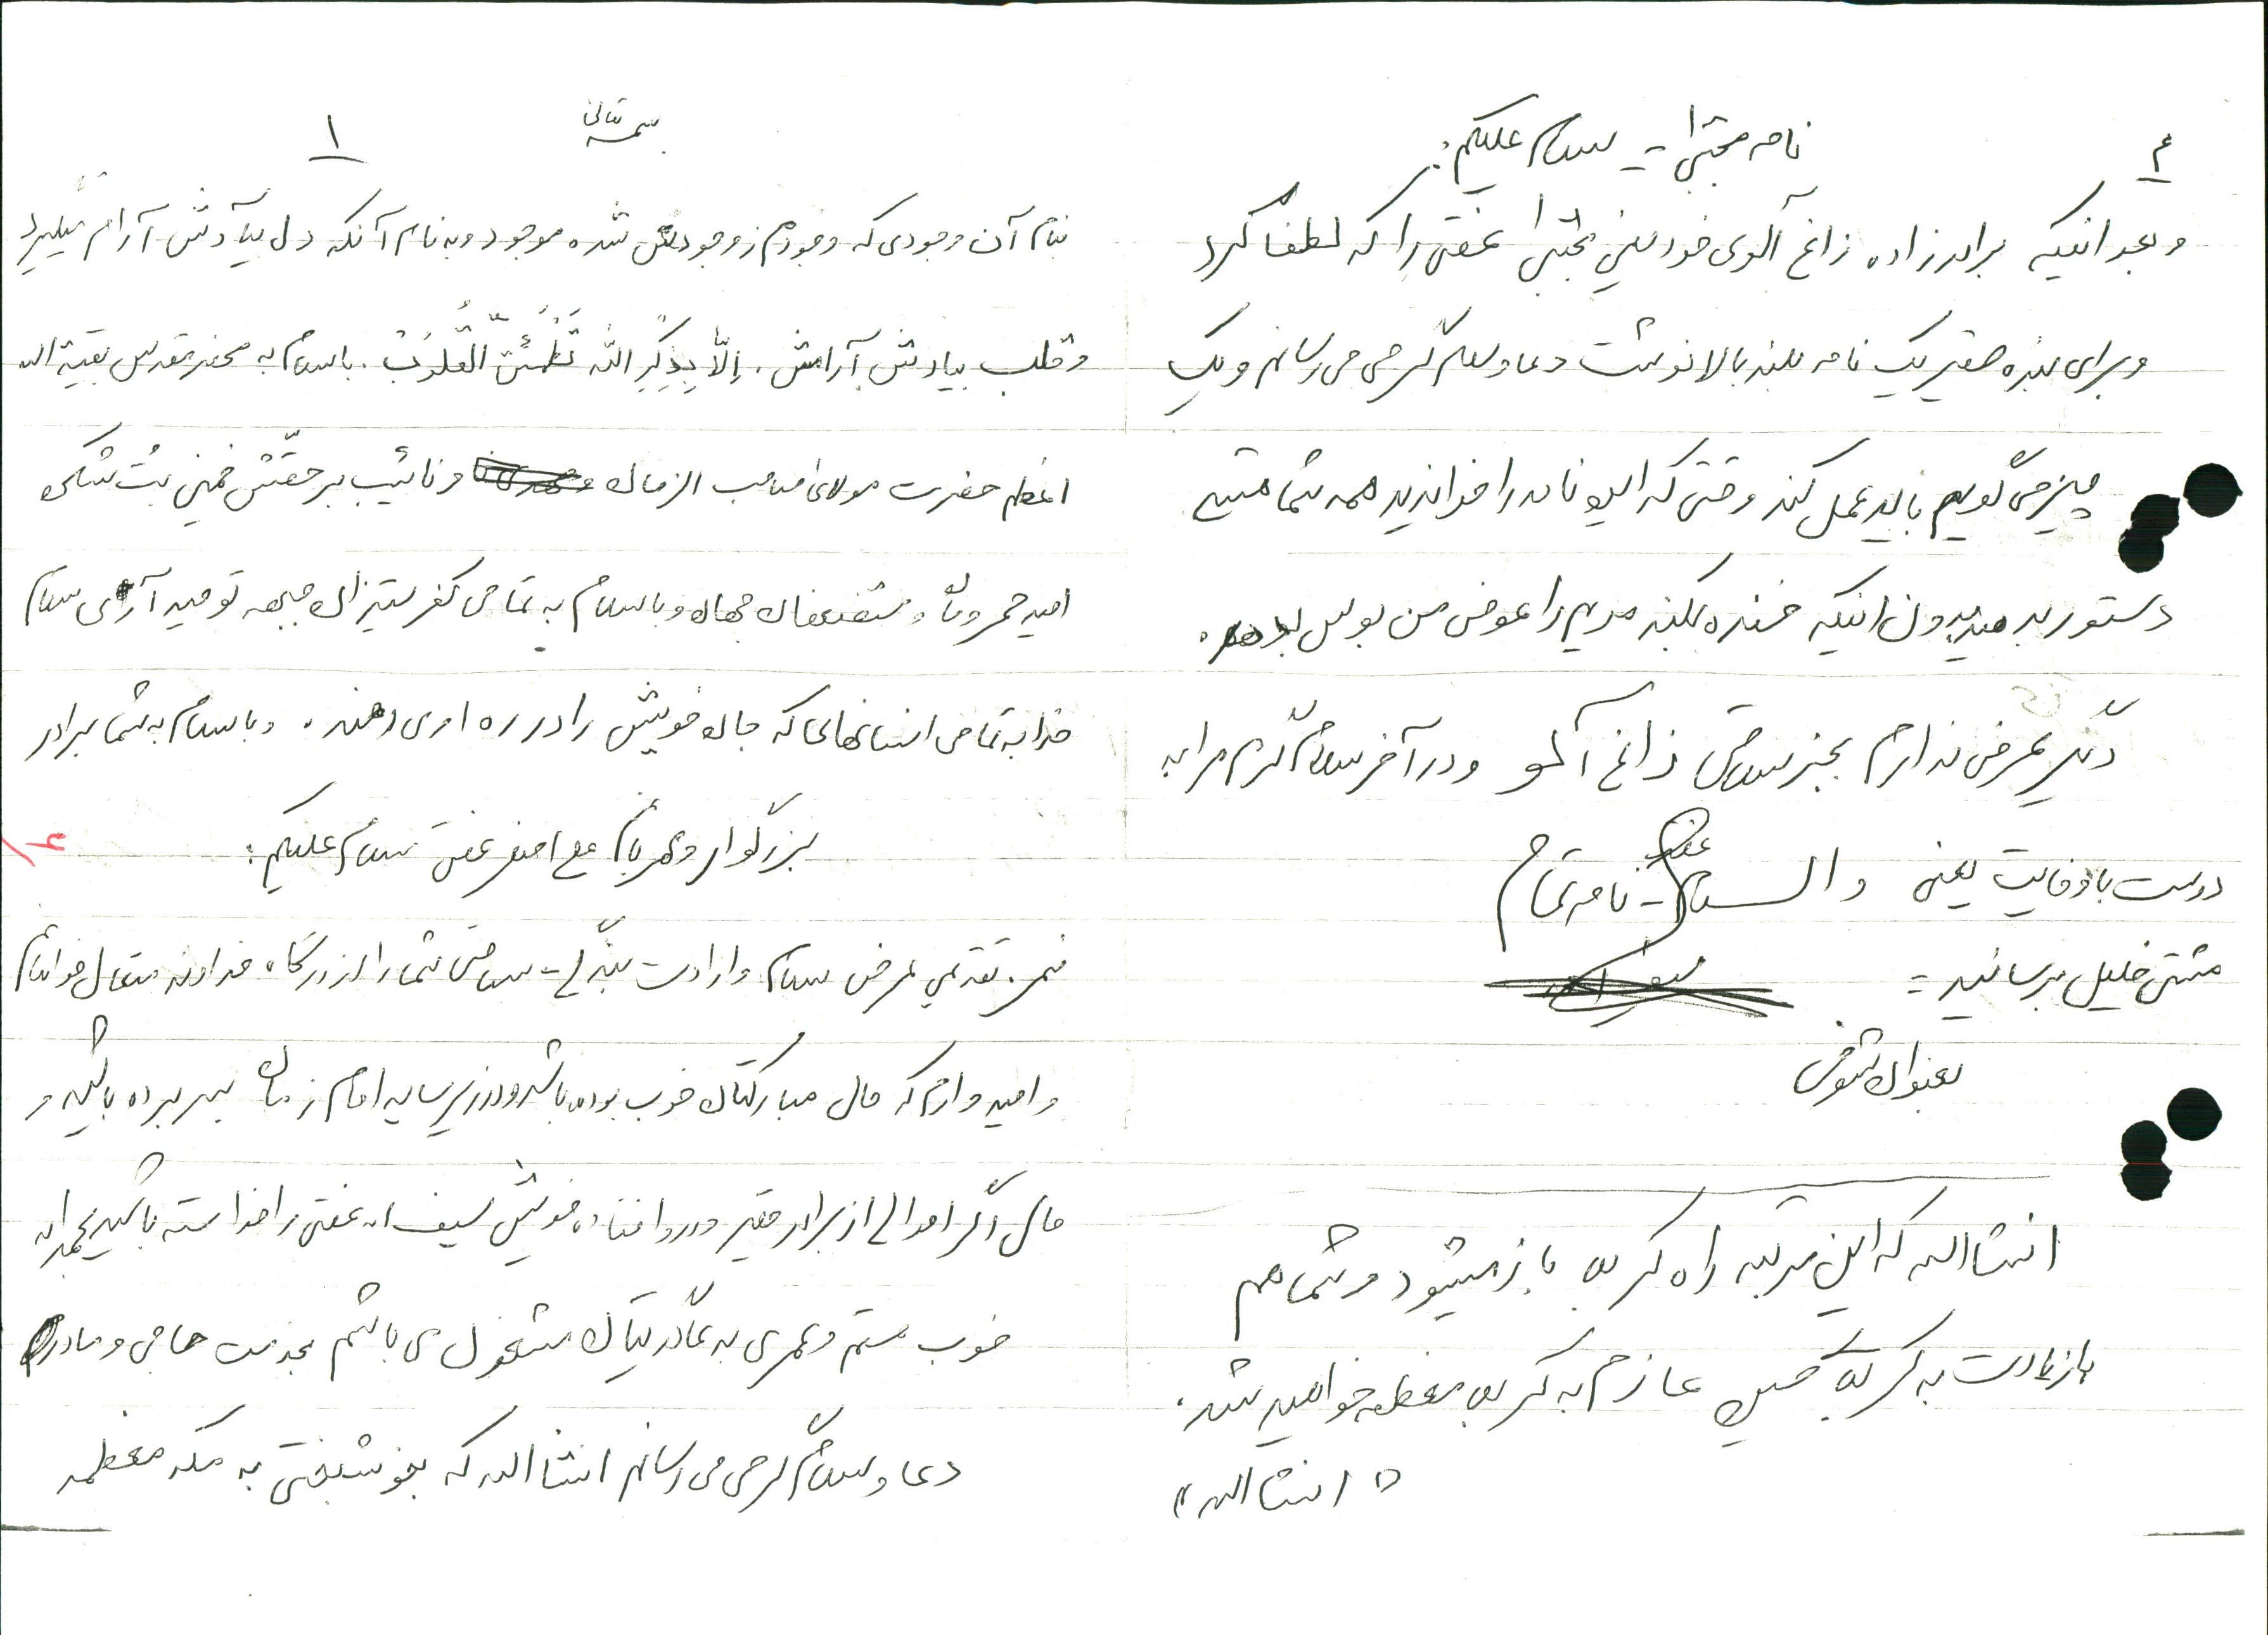 ۴
نامه مجتبی - سلام علیکم:
و بعد اینکه برادرزاده زاغ آلوی خود یعنی مجتبی عفتی را که لطفا کرد
و برای بنده حقیر یک نامه بلند بالا نوشت دعا و سلام گرمی می رسانم و یک
چیز می گویم باید عمل کند وقتی که این نامه را خواندید همه شما
دستور بدهید بدون اینکه خنده بکند مریم را عوض من بوس بدهد.
دیگر عرضی ندارم بجز سلامتی زاغ آلو و در آخر سلام گرم مرا به
دوست باوفایت یعنی والسلام - نامه تمام
مشتی خلیل برسانید -
بعنوان شوخی
انشاالله که این مرتبه راه کربلا باز میشود و شما هم
با زیارت به کربلای حسین عازم به کربلا معظمه خواهید شد.
« انشاالله »
بسمه تعالی
۱
بنام آن وجودی که وجودم ز وجودش شده موجود و به نام آنکه دل بیادش آرام میگیرد
و قلب بیادش آرامش. اِلّا بِذِکرِ اللّه تَطمَئِنّ القُلُوب. باسلام به محضر مقدس بقیة الله
اعظم حضرت مولای صاحب الزمان و نائب بر حقّش خمینی بُت شکن
امید محرومان و مستضعفان جهان و باسلام به تمامی کفر ستیزان جبهه توحید آری سلام
خدا به تمامی انسانهائی که جان خویش را در راه او می دهند. و باسلام به شما برادر
بزرگوار و مهربانم علی اصغر عفتی سلام علیکم:
ضمن تقدیم عرض سلام و ارادت بندگی - سلامتی شما را از درگاه خداوند متعال خواهانم
و امیدوارم که حال مبارکتان خوب بوده باشد و در زیر سایه امام زمان بسر برده باشید و
حال اگر احوالی از برادر حقیر و دور افتاده خویش سیف اله عفتی را خواسته باشید بحمداله
خوب هستم و عمری به دعاگوئیتان مشغول می باشم بخدمت حاجی و مادرم
دعا و سلام گرمی می رسانم انشاالله که بخوشبختی به مکه معظمه